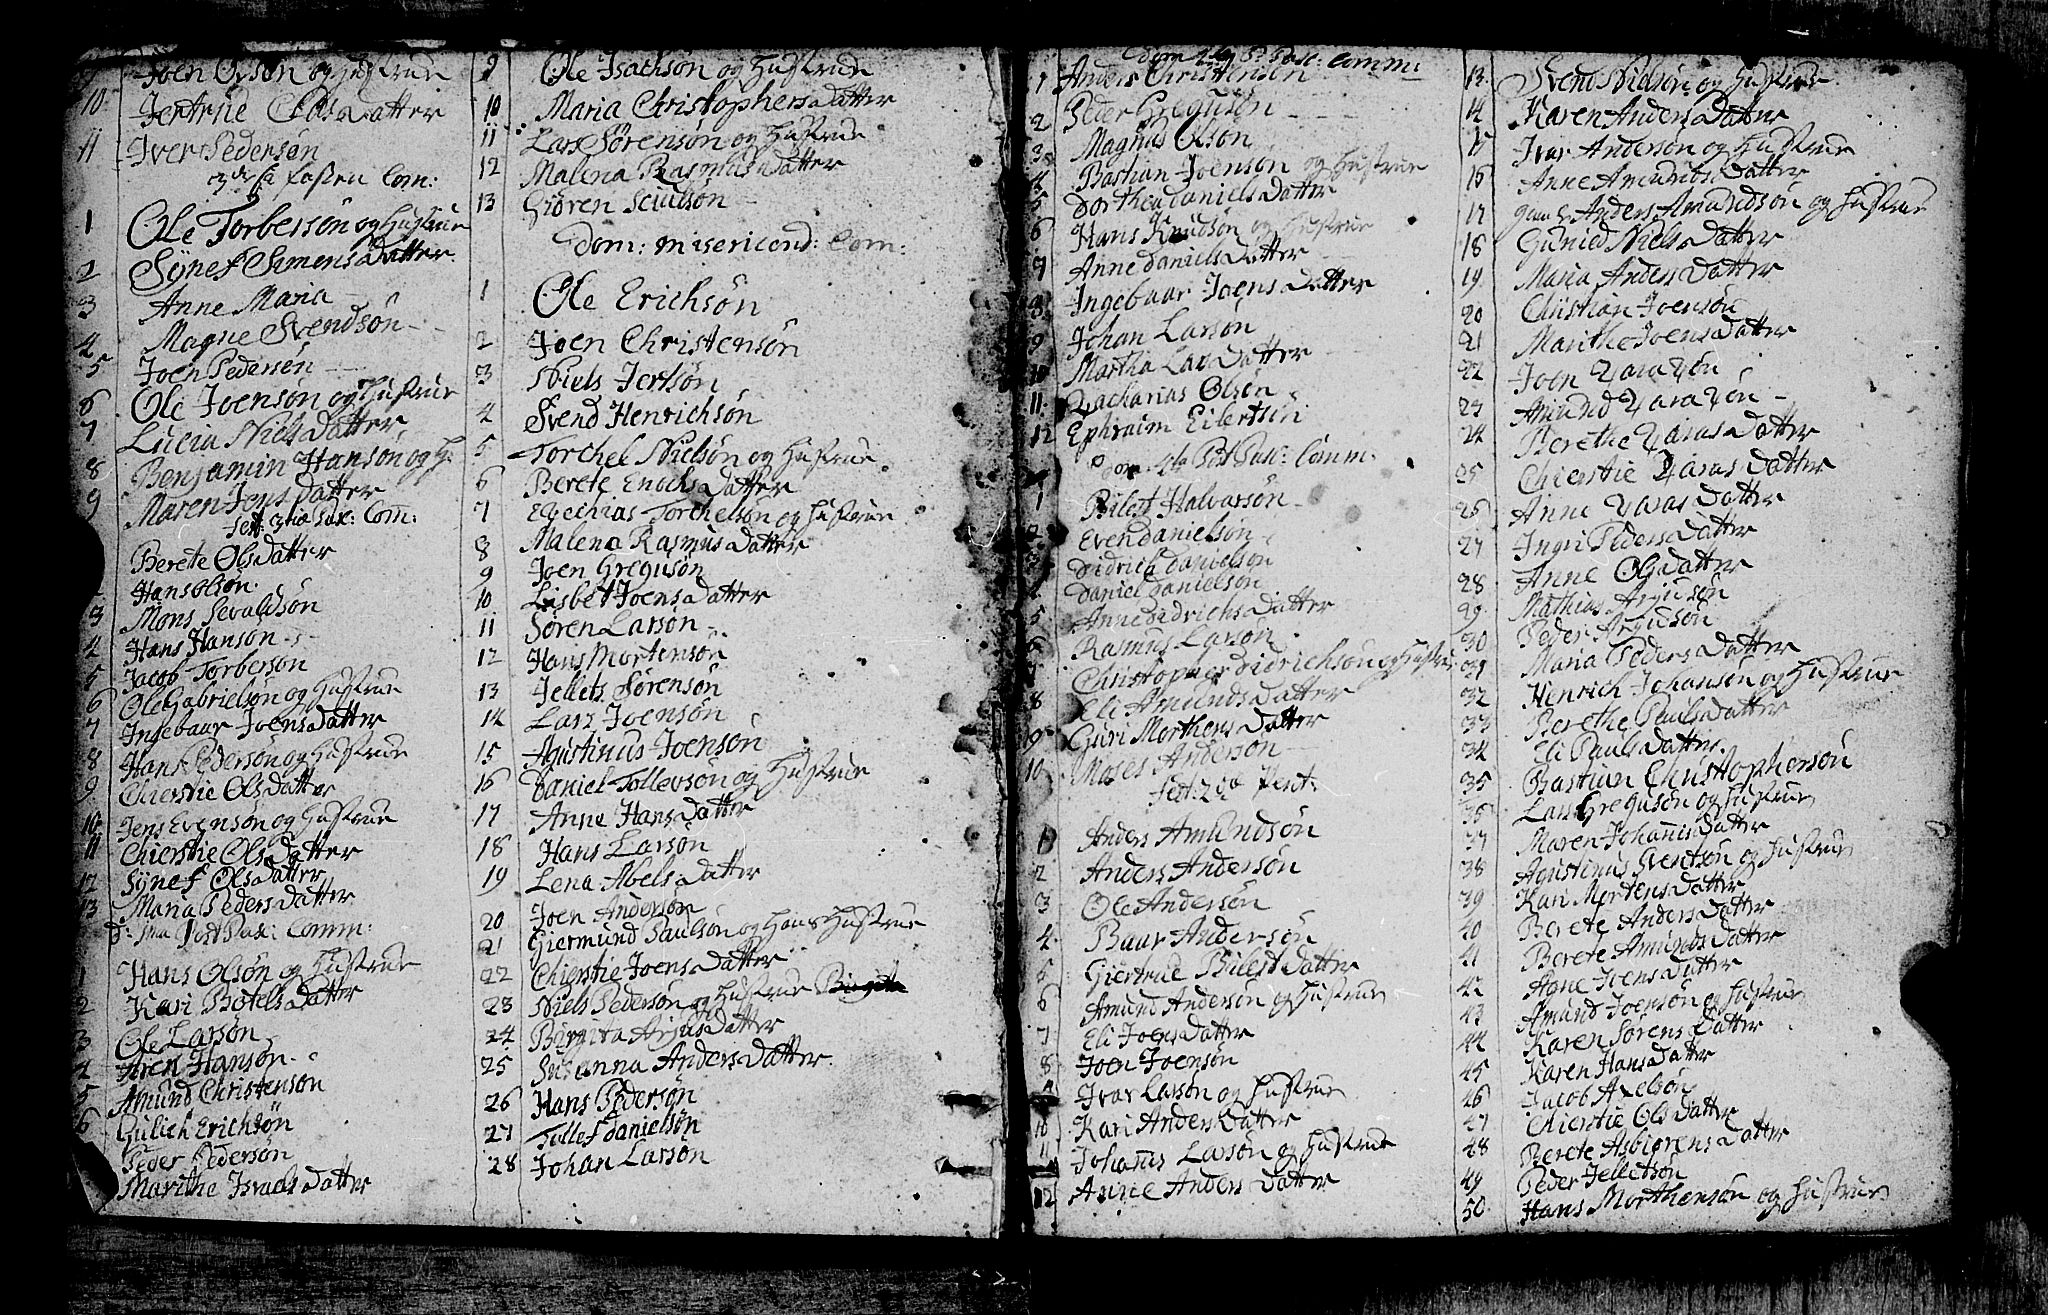 9 Joen Olsøn og Hustrue
10 Jertrue Olas Datter
11 Iver Pedersøn
3die fasten Com:
1 Ole Torbersøn og Hustrue
2 Synef Simens Datter
3 Anne Maria
4 Magne Svendsøn
5 Joen Pedersøn
6 Ole Joensøn og Hustrue
7 Lucia Niels Datter
8 Benjamin Hansøn og H
9 Maren Jens Datter
Fest: 3tia Pasc: Com:
Berete Ols Datter
Hans Olsøn
3 Mons Sevaldsøn
4 Hans Hansøn
5 Jacob Torbersøn
6 Ole Gabrielsøn og Hustrue
7 Ingebaar Joens Datter
8 Hans Pedersøn og Hustrue
9 Chierstie Ols Datter
10 Jens Evensøn og Hustrue
11 Chierstie Ols Datter
12 Synef Ols Datter
13 Maria Peders Datter
D: 1ma Post Pasc: Comm:
1 Hans Olsøn og Hustrue
2 Kari Botels Datter
3 Ole Larsøn
4 Aren Hansøn
5 Amund Christensøn
6 Gulich Erichsøn
Peder Pedersøn
Marithe Israels Datter
9 Ole Isachsøn og Hustrue
10 Maria Christophers Datter
11 Lars Sørensøn og Hustrue
12 Malena Rasmus Datter
13 Giøren Sciulsøn
Dom: misericord: Com:
1 Ole Erichsøn
2 Joen Christensøn
3 Niels Jertsøn
4 Svend Henrichsøn
5 Torchel Nielsøn og Hustrue
6 Berete Enochs Datter
7 Ezechias Torchelsøn og Hustrue
8 Malena Rasmus Datter
9 Joen Gregusøn
10 Lisbet Joens Datter
11 Søren Larsøn
12 Hans Mortensøn
13 Jellets Sørensøn
14 Lars Joensøn
15 Agustinus Joensøn
16 Daniel Tollevsøn og Hustrue
17 Anne Hans Datter
18 Hans Larsøn
19 Lena Abels Datter
20 Joen Andersøn
21 Giermund Paulsøn og Hans Hustrue
22 Chierstie Joens Datter
23 Niels Pedersøn og Hustrue
24 Birgita Arjus Datter
25 Susanna Anders Datter
26 Hans Pedersøn
27 Tollef Danielsøn
28 Johan Larsøn
Dom: Pasc: Comm:
1 Anders Christensen
2 Peder Gregusøn
3 Magnus Olson
4 Bastian Joensøn og Hustrue
5 Dorthea Daniels Datter
6 Hans Knudsøn og Hustrue
7 Anne Daniels Datter
8 Ingebaar Joens Datter
9 Johan Larsøn
10 Martha Lars Datter
11 Zacharias Olsen
12 Ephraim Eilertsen
Dom 4ta Post Pasc: Comm:
1 Bilest Halvarsøn
2 Even Danielsøn
3 Didrich Danielsøn
Daniel Danielsøn
5 Anne Didrichs Datter
6 Rasmus Larsøn
7 Christopher Didrichsøn og Hustrue
8 Eli Amunds Datter
9 Guri Morthens Datter
10 Moses Andersøn
Fest: 2da Pent:
1 Anders Amundsøn
2 Anders Andersøn
3 Ole Andersøn
4 Baar Andersøn
5 Giertrue Bilest Datter
6 Amund Andersøn og Hustrue
7 Eli Joens Datter
8 Joen Joensøn
Ivar Larsøn og Hustrue
10 Kari Anders Datter
11 Johannis Larsøn og Hustrue
12 Anne Anders Datter
13 Svend Nielsøn og Hustrue
14 Karen Anders Datter
15 Ivar Andersøn og Hustrue
16 Anne Amunds Datter
17 Anders Amundsøn og Hustrue
18 Gunild Niels Datter
19 Maria Anders Datter
20 Christian Joensøn
21 Marithe Joens Datter
22 Joen Zarasøn
23 Amund Zarasøn
24 Berethe Zaras Datter
25 Chierstie Zaras Datter
26 Anne Zaras Datter
27 Ingri Peders Datter
28 Anne Ols Datter
29 Mathias Arjusøn
30 Peder Arjusøn
31 Maria Peders Datter
32 Henrich Johansøn og Hustrue
33 Berethe Pauls Datter
34 Eli Pauls Datter
35 Bastian Christophersøn
36 Lars Gregusøn og Hustrue
37 Maren Johannis Datter
38 Agustinus Sventsøn og Hustrue
39 Kari Mortens Datter
40 Berete Anders Datter
41 Berete Amunds Datter
42 Anne Joens Datter
43 Amund Joensøn og Hustrue
44 Karen Sørens Datter
45 Karen Hans Datter
46 Jacob Axelsøn
47 Chierstie Ols Datter
48 Berete Asbiørens Datter
49 Peder Jelletsøn
50 Hans Morthensøn og Hustrue